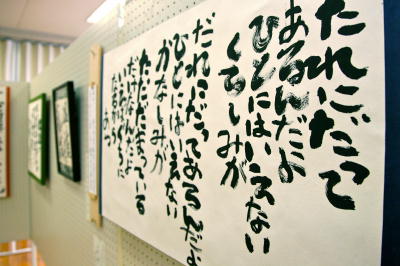 だれにだって
あるんだよ
ひとにはいえない
くるしみが
だれにだってあるんだよ
ひとにはいえない
かなしみが
ただだまっている
だけなんだよ
いえばぐちに